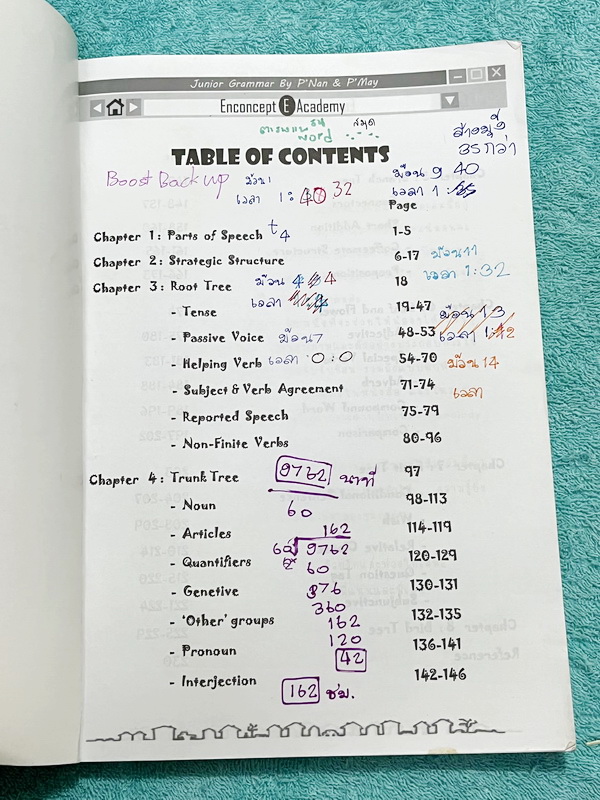 Junior Grammar By P'Nan & P'May
Enconcept E Academy
สมุด
TABLE OF CONTENTS
Boost Back up
ม้วน 1
เวลา 1: 32
ม้วน 9 40
เวลา 1:
Page
Chapter 1 : Parts of Speech 1-5
Chapter 2 : Strategic Structure 6-17
ม้วน 11
เวลา 1:32
Chapter 3 : Root Tree 18
ม้วน 4
เวลา
- Tense 19-47
ม้วน 13
- Passive Voice 48-53
ม้วน 7
เวลา 1:12
- Helping Verb 54-70
เวลา 0:0
ม้วน 14
- Subject & Verb Agreement 71-74
เวลา
- Reported Speech 75-79
- Non-Finite Verbs 80-96
Chapter 4 : Trunk Tree 97
9762 นาที
60
- Noun 98-113
- Articles 114-119
162
- Quantifiers 120-129
60 9762
60
- Genetive 130-131
376
360
- 'Other' groups 132-135
162
120
- Pronoun 136-141
42
- Interjection 142-146
162 ชม.